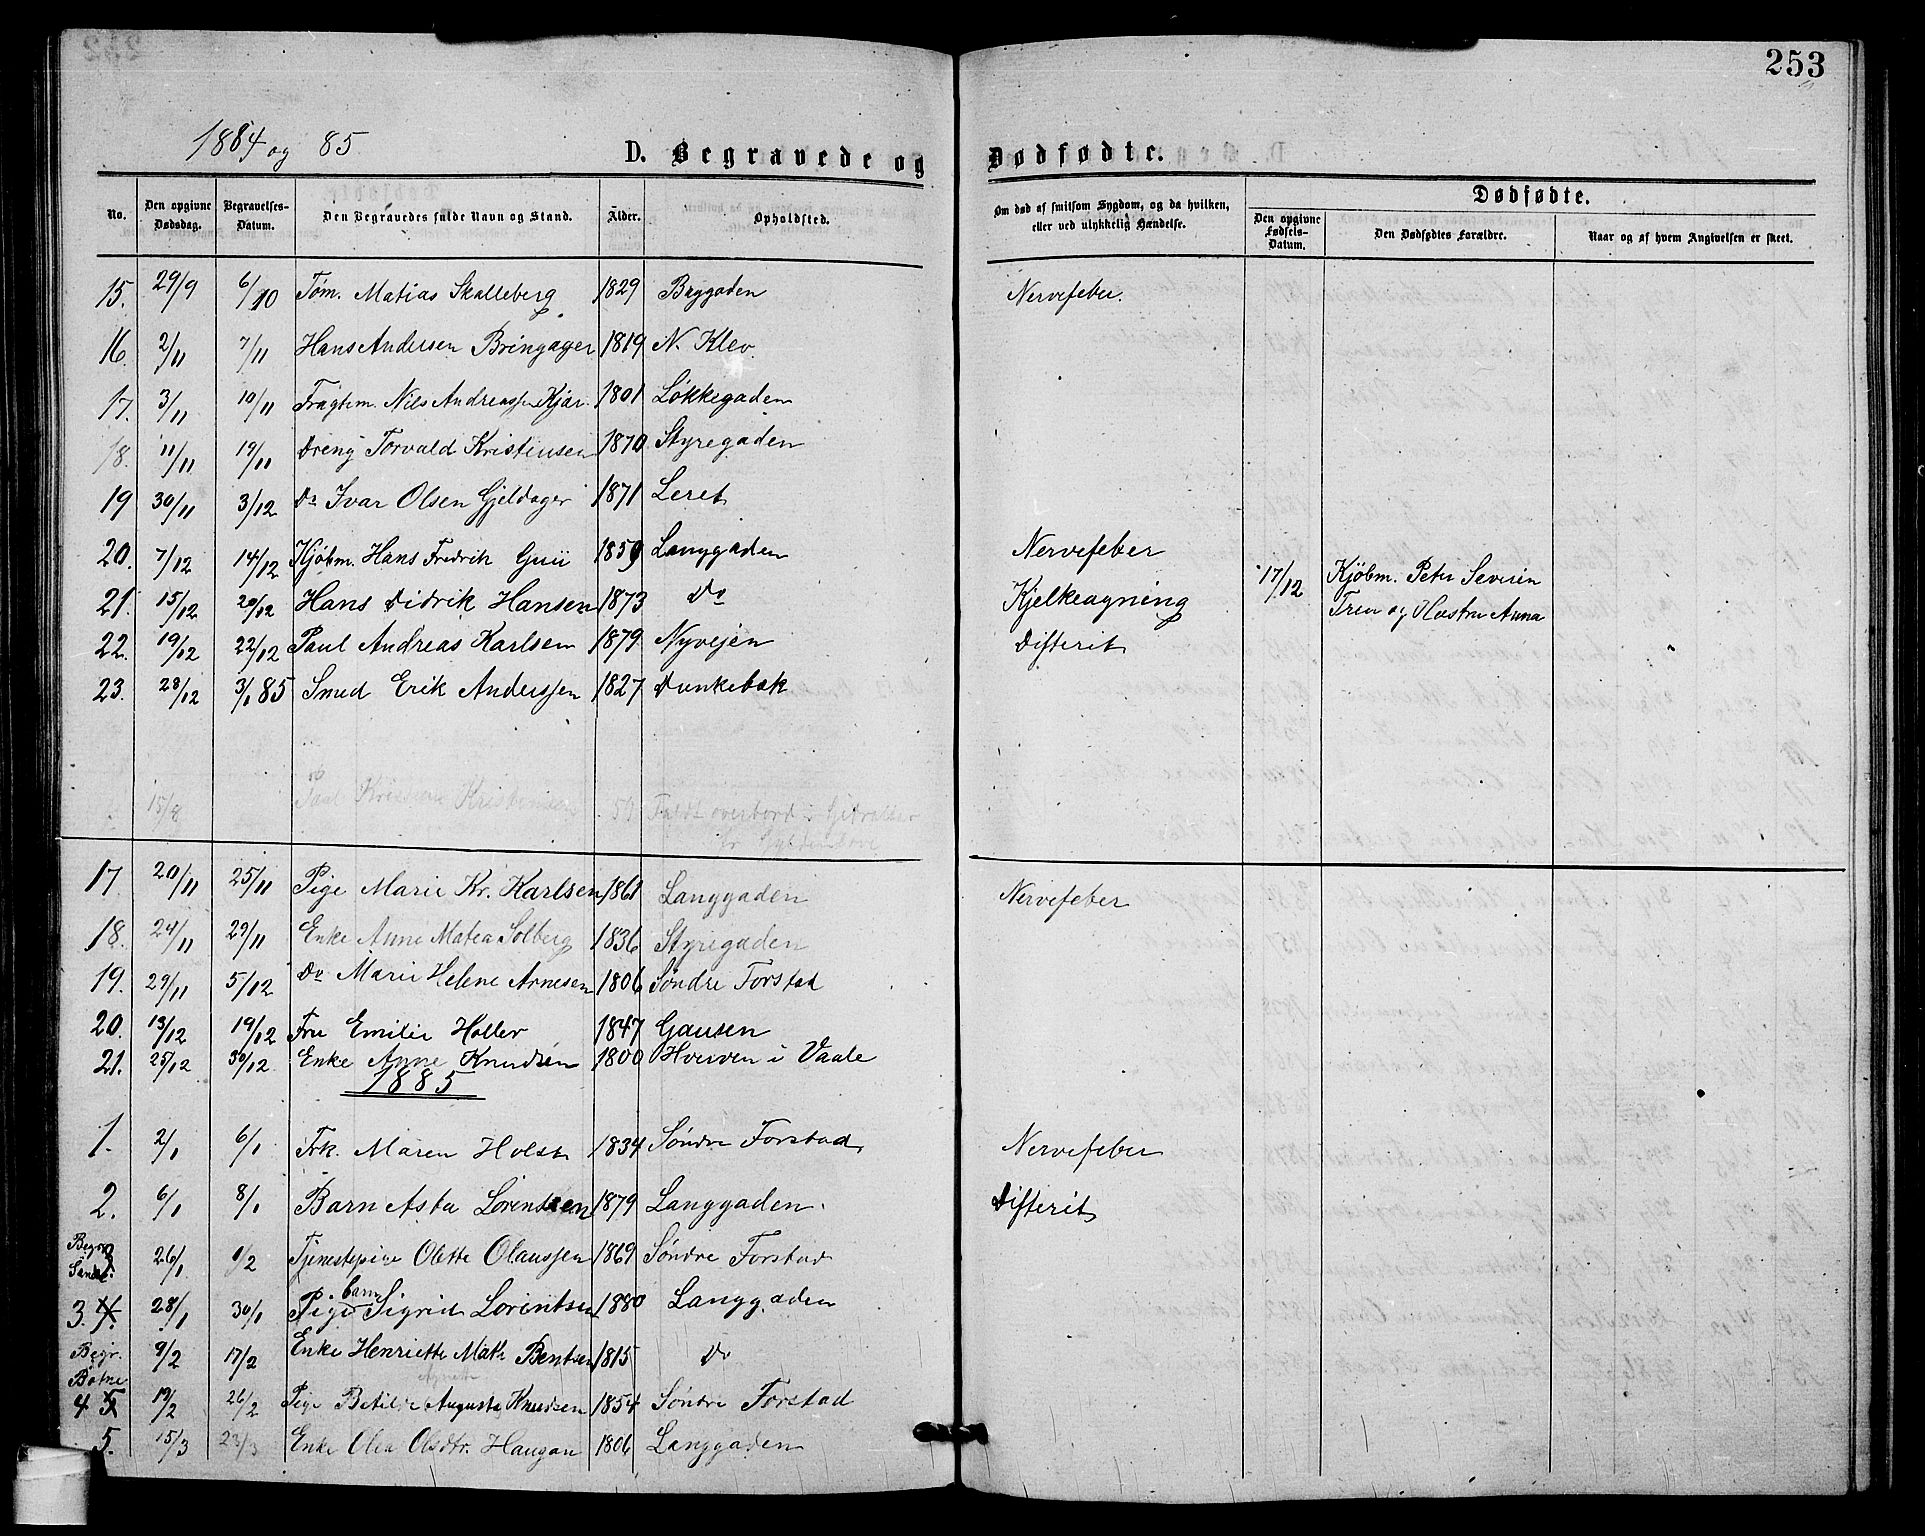 253
1884 og 85
D. Begravede og Dødfødte.
No. Den opgivne Dødsdag. Begravelses-Datum. Den Begravedes fulde Navn og Stand. Alder. Opholdsted. Om død af smitsom Sygdom, og da hvilken, eller ved ulykkelig Hændelse. Dødfødte. Den opgivne Fødsels-Datum. Den Dødfødtes Forældre. Naar og af hvem Angivelsen er skeet.
15. 29/9 6/10 Tøm. Matias Skalleberg 1829 Bryggaden Nervefeber.
16. 2/11 7/11 Hans Andersen Bringager 1819 N. Klev.
17. 3/11 10/11 Fragtm. Nils Andreassen Kjær. 1801 Løkkegaden
18. 11/11 19/11 Dreng Torvald Kristensen 1870 Styregaden
19 30/11 3/12 Do Ivar Olsen Gjeldager 1871 Leret
20. 7/12 14/12 Kjøbm. Hans Fredrik Guii 1859 Langgaden Nervefeber
17/12 Kjøbm. Peter Severin
21. 15/12 20/12 Hans Didrik Hansen 1873 Do Kjelkeagning
og Hustru Anna
22. 19/12 22/12 Paul Andreas Karlsen 1879 Nyvejen Difterit
23. 28/12 3/1 85 Smed Erik Anderssen 1827 Dunkebæk
15/8 Kristensen 59 Faldt overbord i Gibraltar
17. 20/11 25/11 Pige Marie Kr. Karlsen 1861 Langgaden Nervefeber
18. 24/11 29/11 Enke Anne Matea Solberg 1836 Styregaden
19. 29/11 5/12 Do Marie Helene Arnesen 1806 Søndre Forstad
20. 13/12 19/12 Fru Emilie Holler 1847 Gausen
21. 25/12 30/12 Enke Anne Knudsen 1800 Hverven i Vaale
1885
1. 2/1 6/1 Frk. Maren Holst 1834 Søndre Forstad Nervefeber
2. 6/1 8/1 Barn Asta Lorentsen 1879 Langgaden. Difterit
Begr. Sande. 26/1 1/2 Tjenestepige Olette Olaussen 1869 Søndre Forstad
3. 4. 28/1 30/1 Pigebarn Sigrid Lorentsen 1880 Langgaden
Begr. Botne 9/2 17/2 Enke Henriette Math. Bentsen 1815 Do
4 5 19/2 26/2 Pige Betilde Augusta Knudsen 1854 Søndre Forstad
5. 15/3 23/3 Enke Olea Olsdtr. Haugan 1806 Langgaden